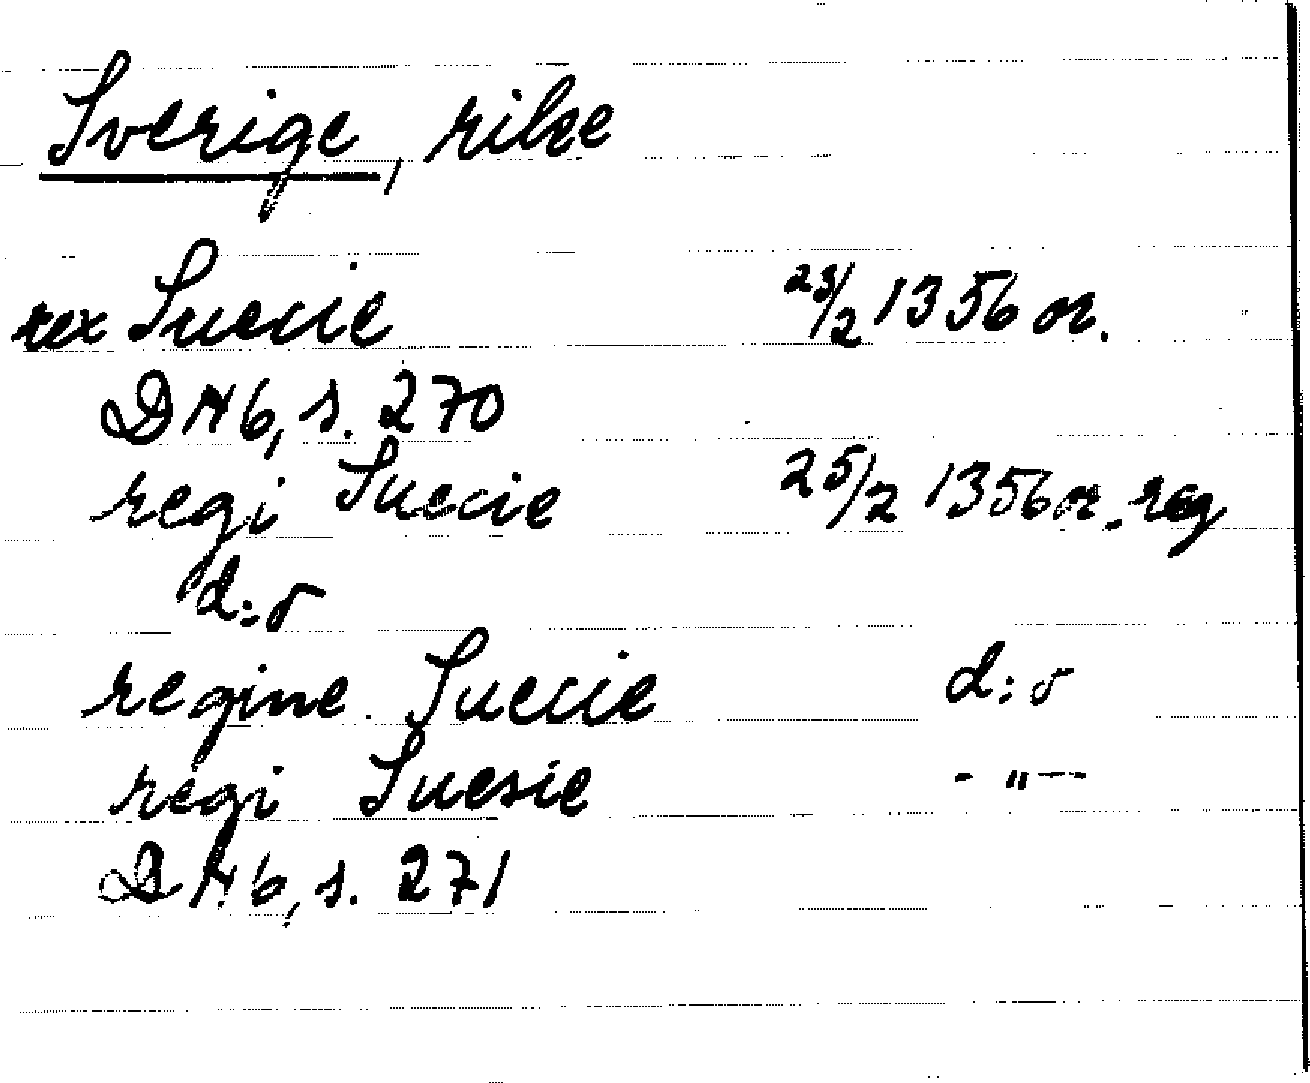 Sverige, rike
rex Suecie 23/2 1356 or.
DN 6, s. 270
regi Suecie 25/2 1356 or. reg
d:o
regine Suecie d:o
regi Suesie - " -
DN 6, s. 271